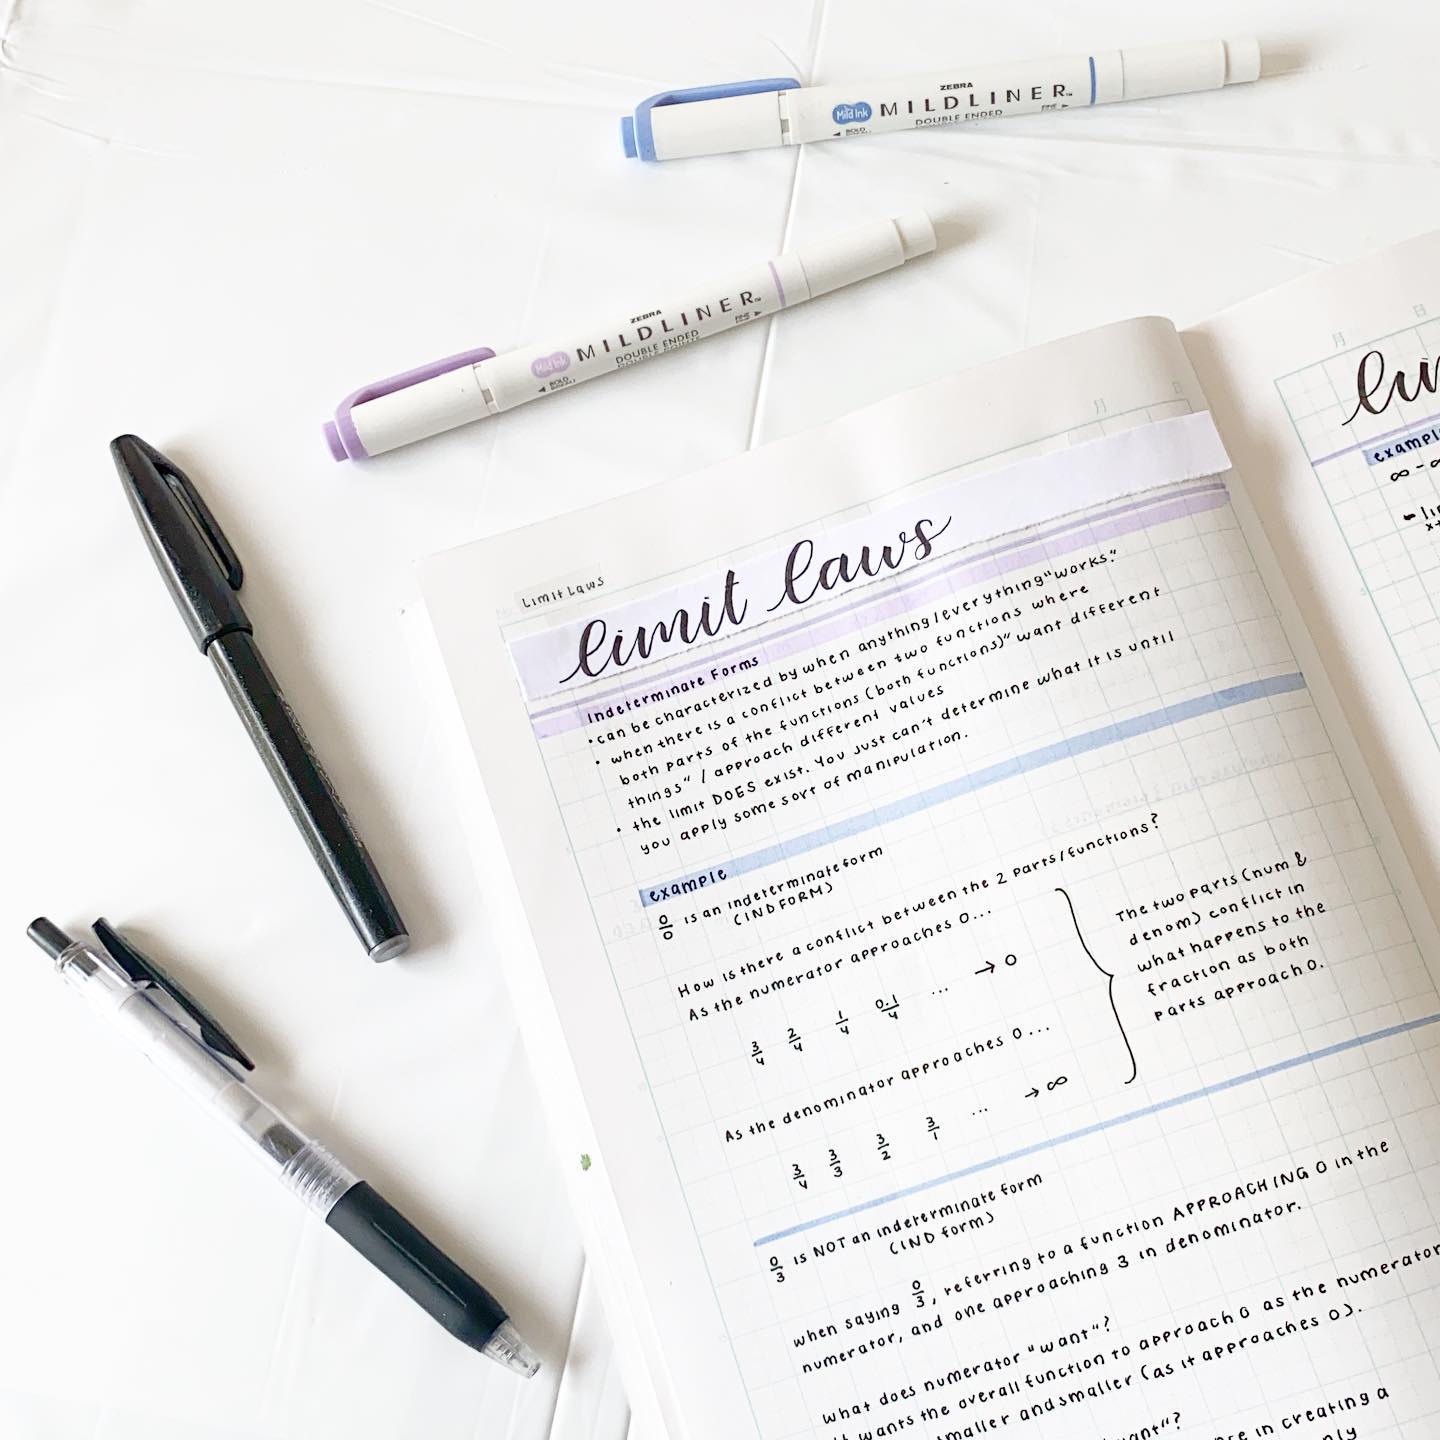 ZEBRA
Mild Ink MILDLINER™
DOUBLE ENDED
◄ BOLD
FINE ►
ZEBRA
Mild Ink MILDLINER™
DOUBLE ENDED
◄ BOLD
FINE ►
月
日
月
日
Limit Laws
limit laws
Indeterminate Forms
• can be characterized by when anything/everything "works."
• when there is a conflict between two functions where
both parts of the functions (both functions)" want different
things" / approach different values
• the limit DOES exist. You just can't determine what it is until
you apply some sort of manipulation.
example
0/0 is an indeterminate form
(IND FORM)
How is there a conflict between the 2 parts/functions?
As the numerator approaches 0...
3/4 2/4 1/4 0.1/4 ... → 0
As the denominator approaches 0...
3/4 3/3 3/2 3/1 ... → ∞
The two parts (num &
denom) conflict in
what happens to the
fraction as both
parts approach 0.
0/3 is NOT an indeterminate form
(IND form)
when saying 0/3, referring to a function APPROACHING 0 in the
numerator, and one approaching 3 in denominator.
what does numerator "want"?
wants the overall function to approach 0 as the numerator
smaller and smaller (as it approaches 0).
want"?
in creating a
example
∞ -